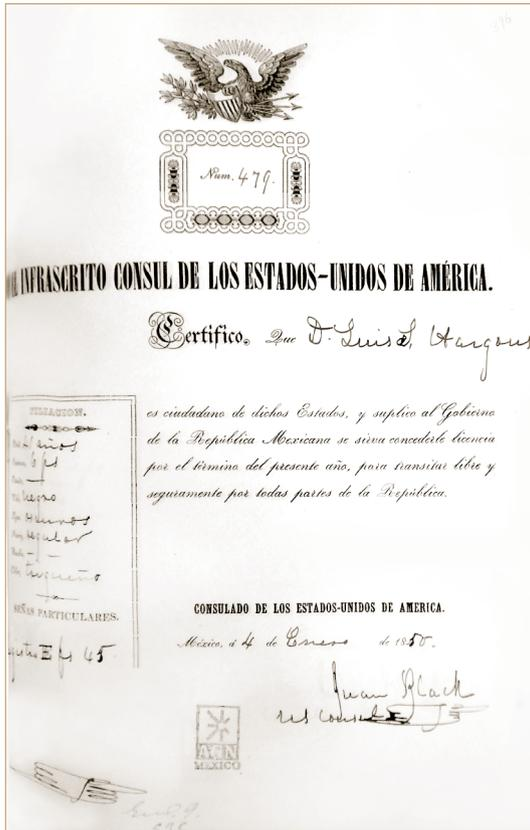 Num. 479.
INFRASCRITO CONSUL DE LOS ESTADOS-UNIDOS DE AMÉRICA.
Certifico. Que D. Luis S. Hargous
es ciudadano de dichos Estados, y suplico al Gobierno
de la República Mexicana se sirva concederle licencia
por el término del presente año, para transitar libre y
seguramente por todas partes de la República.
FILIACION.
años
negro
regular
trigueño
SEÑAS PARTICULARES.
45
CONSULADO DE LOS ESTADOS-UNIDOS DE AMERICA.
México, á 4 de Enero de 1850.
Juan Black
AGN
MÉXICO